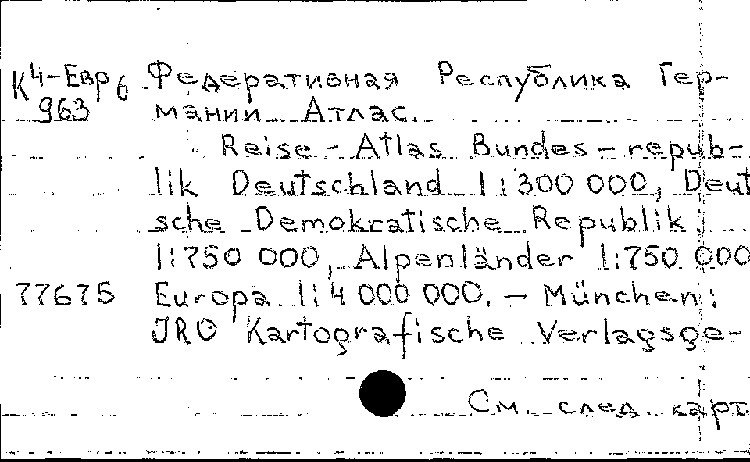 К4-Евр6 Федеративная Республика Гер-
963 мании Атлас.
Reise-Atlas Bundes-repub-
lik Deutschland 1:300 000, Deut
sche Demokratische Republik
1:750 000, Alpenländer 1:750 000
77675 Europa 1:4 000 000. – München:
JRO Kartografische Verlagsge-
См. след. карт